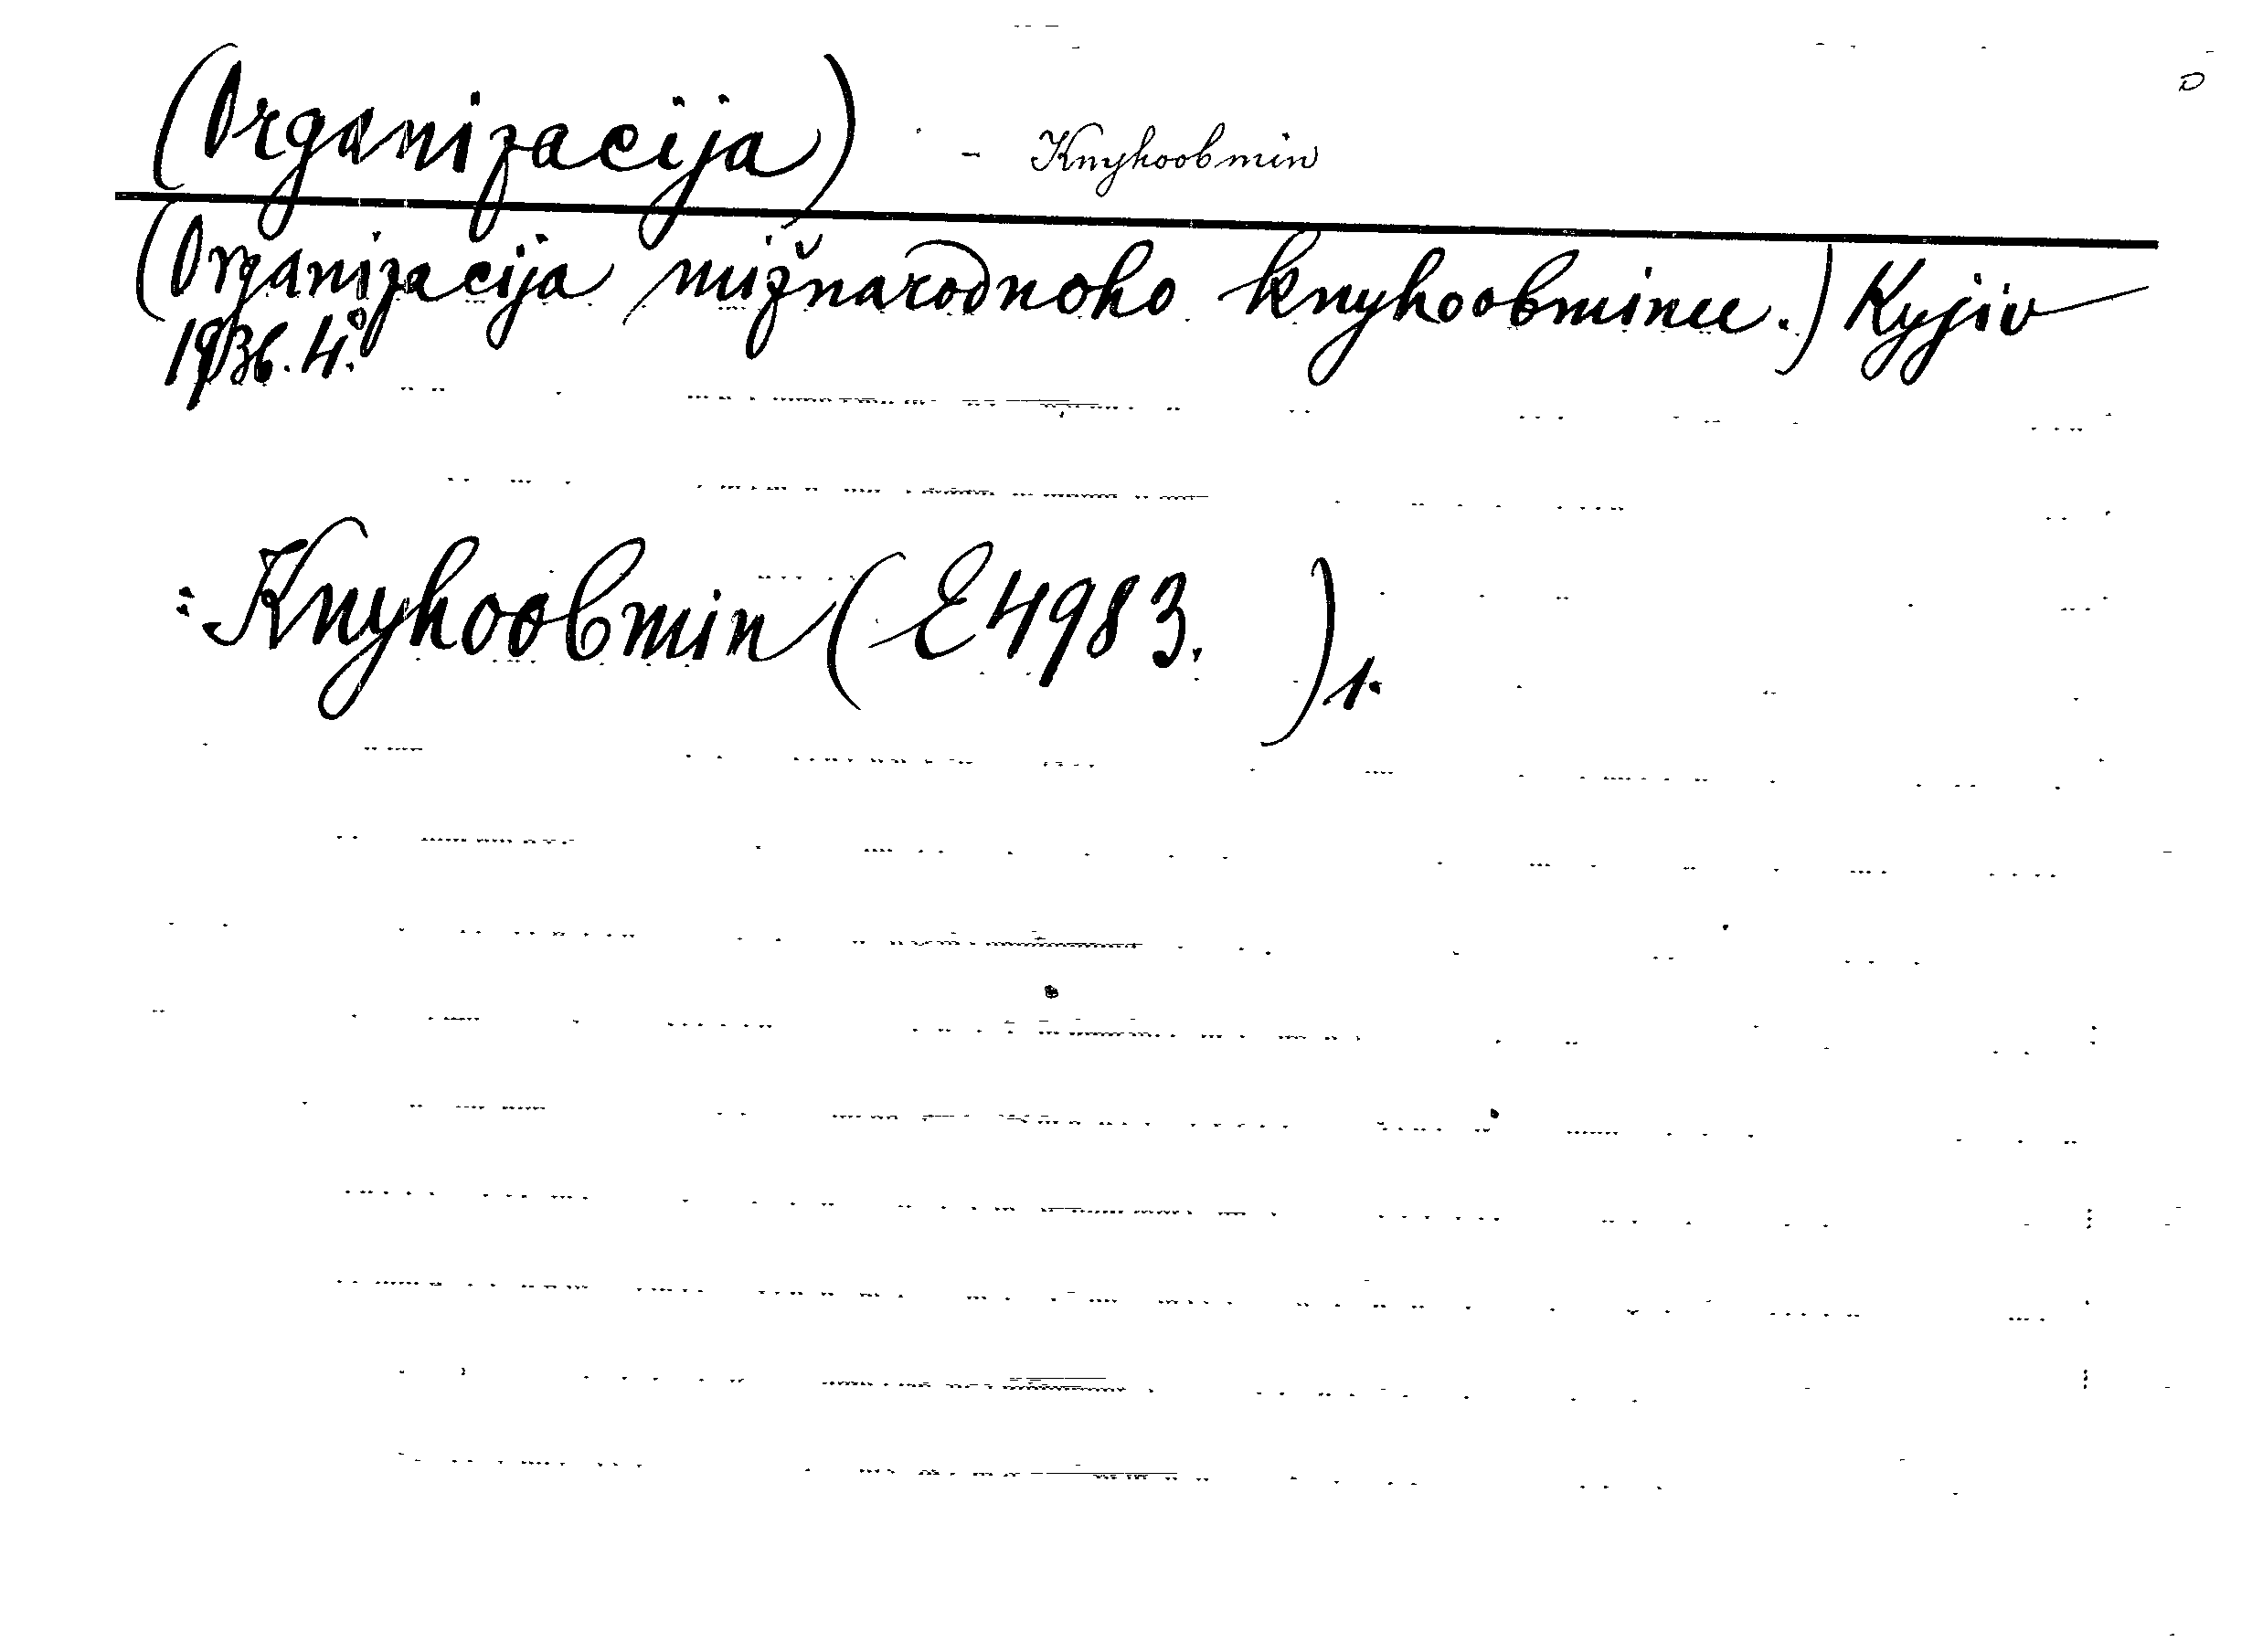 (Organizacija) - Knyhoobmin
(Organizacija mižnarodnoho knyhoobminu.) Kyjiv
1936. 4°.
: Knyhoobmin (E 4983. ) 1.